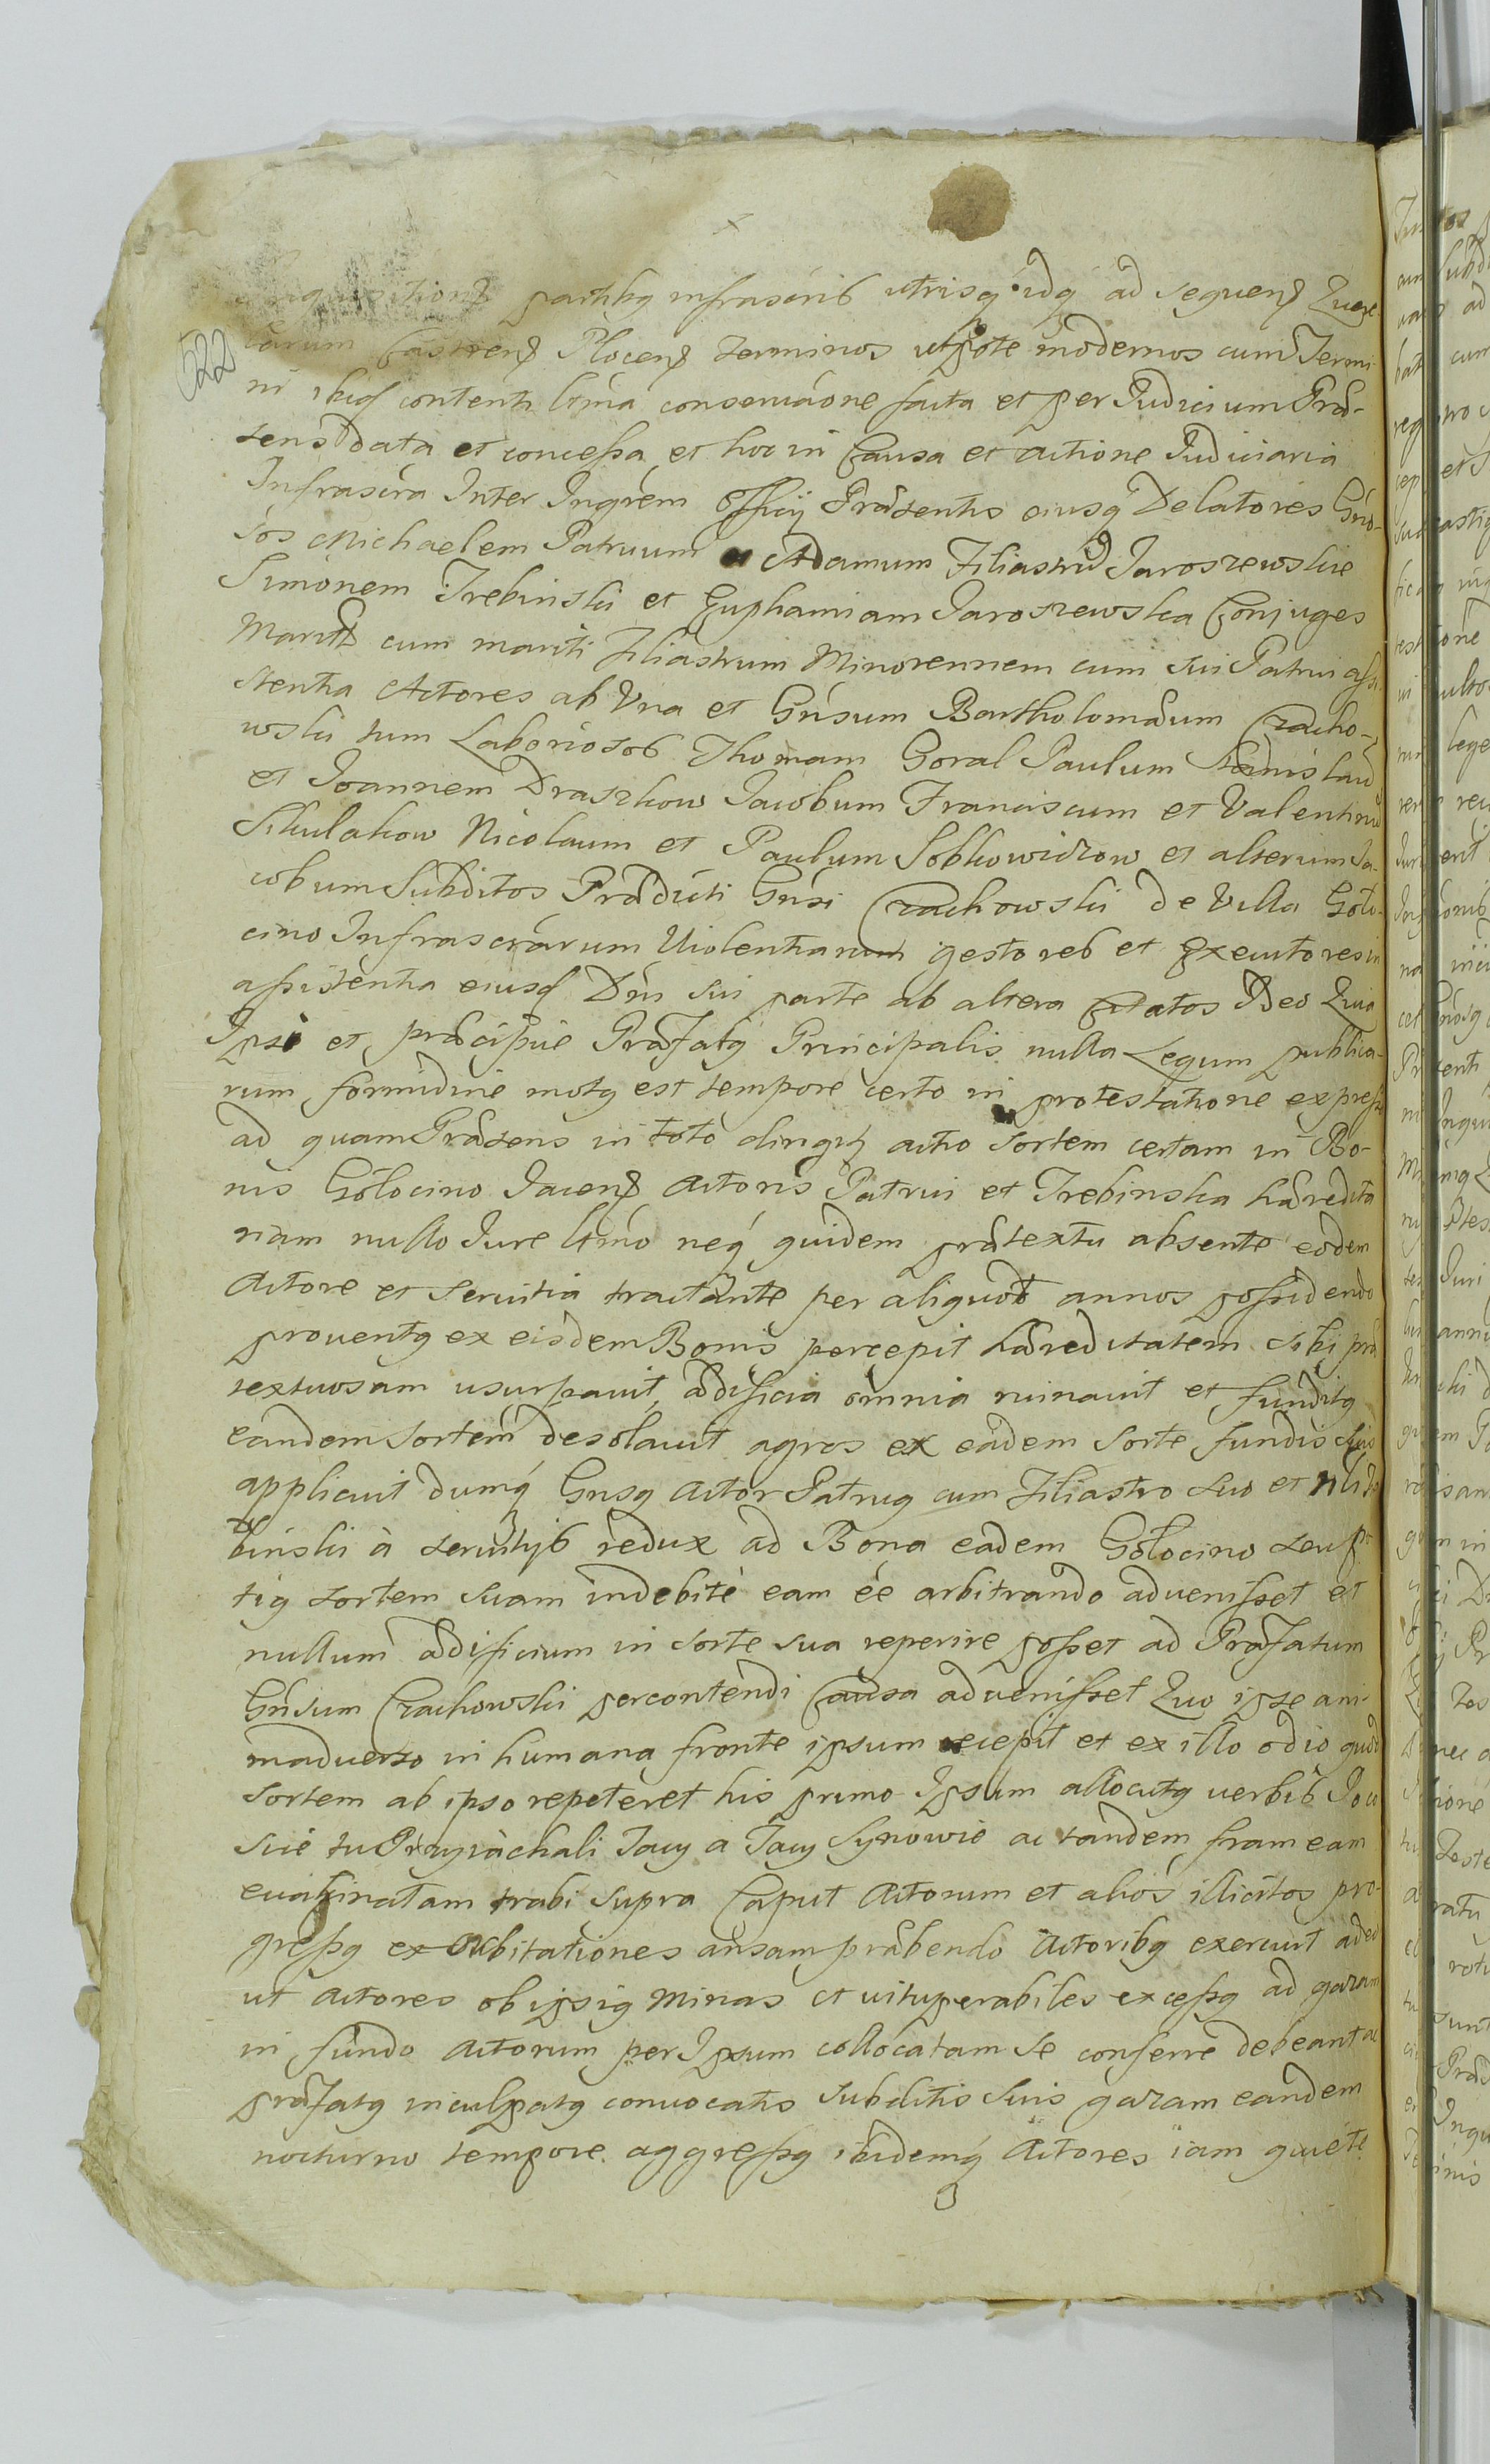 partibq infrascrib utrisq idq ad sequens Quere
larum Castrens Plocens terminos utpote modernos cum Termi
ni contenti ltma conservaone facta et per Judicium Præ-
sens data et concessa et hoc in Causa et actione Judiciaria
Infrascra Inter Ingrem Officij Præsentis eiusq Delatores Gno-
sos Michaelem Patruum Adamum Filiastrū Jaroszewskie
Simonem Trebinski et Euphamiam Jaroszewska Conjuges
Marita cum mariti Filiastrum Minorennem cum sui Patrui assi
stentia Actores ab Una et Gnsum Bartholomæum Czacho-
wski tum Laboriosos Thomam Goral Paulum Stanislaū
et Joannem Draszkow Jacobum Franciscum et Valentinū
Sikulakow Nicolaum et Paulum Sobkowiczow et alterum Ja-
cobum Subditos Prædicti Gnsi Czachowski de Villa Goło-
cino Infrascrarum Violentiarum gestores et Executores in
assistentia eiusd Dni sui parte ab altera Citatos Deo Quia
Ipsi et præcipue Præfatq Principalis nulla Legum publica-
rum formidine motq est tempore certo in protestatione expresso
ad quam Præsens in toto dirigit actio sortem certam in Bo-
nis Gołocino Jacens Actoris Patrui et Trebinska hæredita
riam nullo Jure ltmo neq quidem prætextu absente eodem
Actore et servitia tractante per aliquot annos possidendo
proventq ex eisdem Bonis percepit hæreditatem sibi præ
textuosam usurpavit, ædificia omnia ruinavit et funditq
eandem sortem desolavit agros ex eadem sorte fundis suis
applicuit dumq Gnsq Actor Patruq cum Filiastro suo et
binski à servitijs redux ad Bona eadem Gołocino seu po
tiq sortem suam indebité eam ée arbitrando advenisset et
nullum ædificium in sorte sua reperire posset ad Præfatum
Gnsum Czachowski percontendi Causa advenisset Quo ipse ani-
madverso in humana fronte ipsum recepit et ex illo odio quod
sortem ab ipso repeteret his primo Ipsum allocutq verbis Poco
scie tu Przyiachali Jacy a Jacy Synowie ac tandem frameam
evaginatam trabi supra Caput Actorum et alios illicitos pro-
gressq exorbitationes ansam præbendo Actoribq exercuit adeo
ut Actores ob ipsiq minas et vituperabiles excessq ad gazam
in fundo Actorum per Ipsum collocatam se conferre debeant ac
præfatq inculpatq convocatis subditis suis gazam eandem
nocturno tempore aggressq ibidemq Actores iam quiete
522